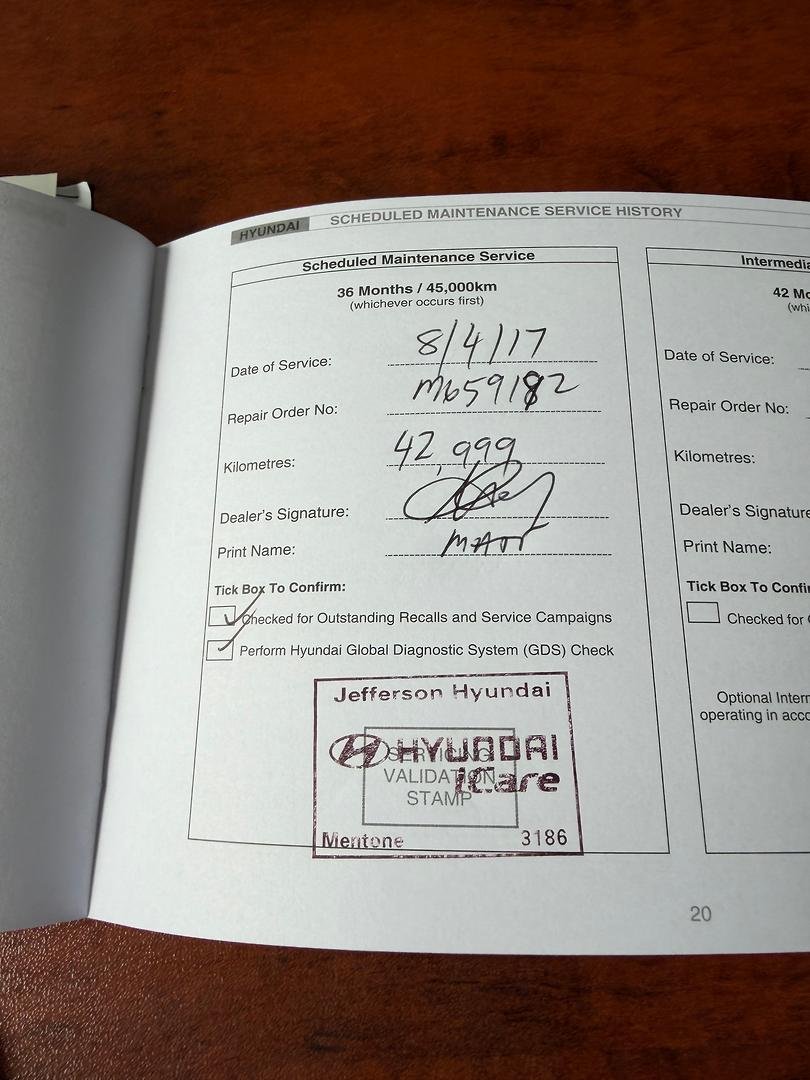 HYUNDAI SCHEDULED MAINTENANCE SERVICE HISTORY
Scheduled Maintenance Service
36 Months / 45,000km
(whichever occurs first)
Date of Service: 8/4/17
Repair Order No: M659182
Kilometres: 42,999
Dealer's Signature:
Print Name: MATT
Tick Box To Confirm:
Checked for Outstanding Recalls and Service Campaigns
Perform Hyundai Global Diagnostic System (GDS) Check
Jefferson Hyundai
HYUNDAI
iCare
SERVICING
VALIDATION
STAMP
Mentone 3186
Intermedia
42 Mo
(whi
Date of Service:
Repair Order No:
Kilometres:
Dealer's Signature
Print Name:
Tick Box To Confi
Checked for
Optional Inter
operating in acco
20